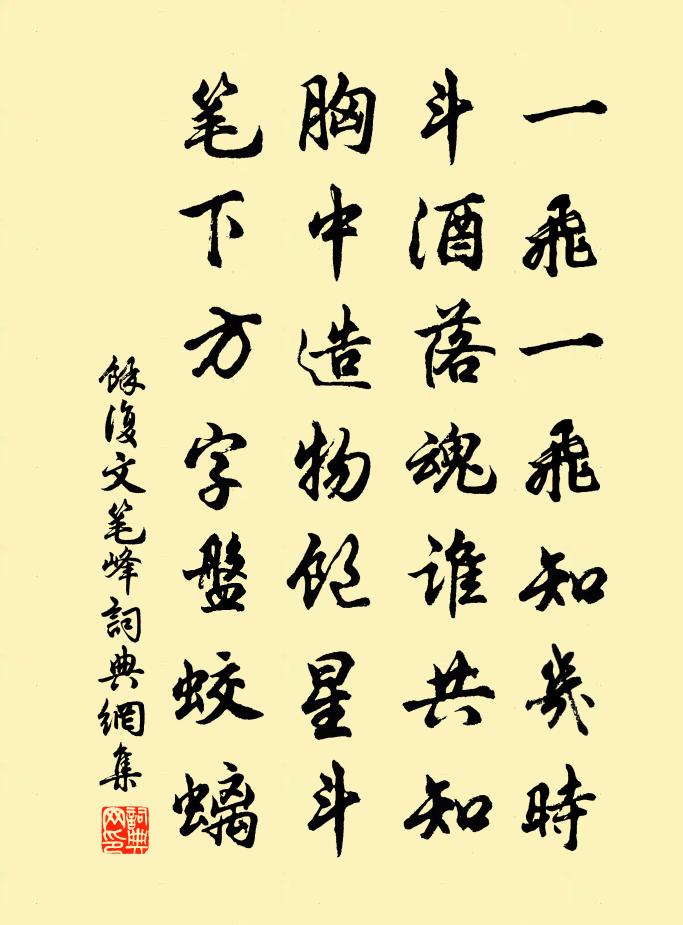 一飛一飛知幾時
斗酒落魂誰共知
胸中造物飽星斗
笔下方字盤蛟螭
餘復文笔峰詞典網集
詞典网印